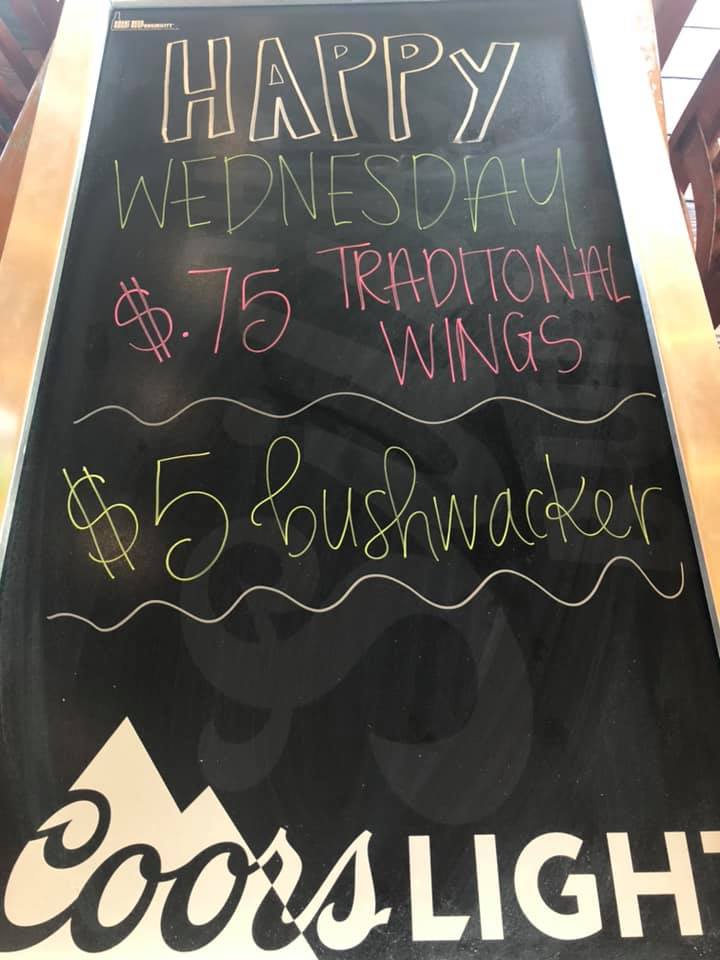 HAPPY
WEDNESDAY
$.75 TRADITONAL
WINGS
$5 bushwacker
Coors LIGH